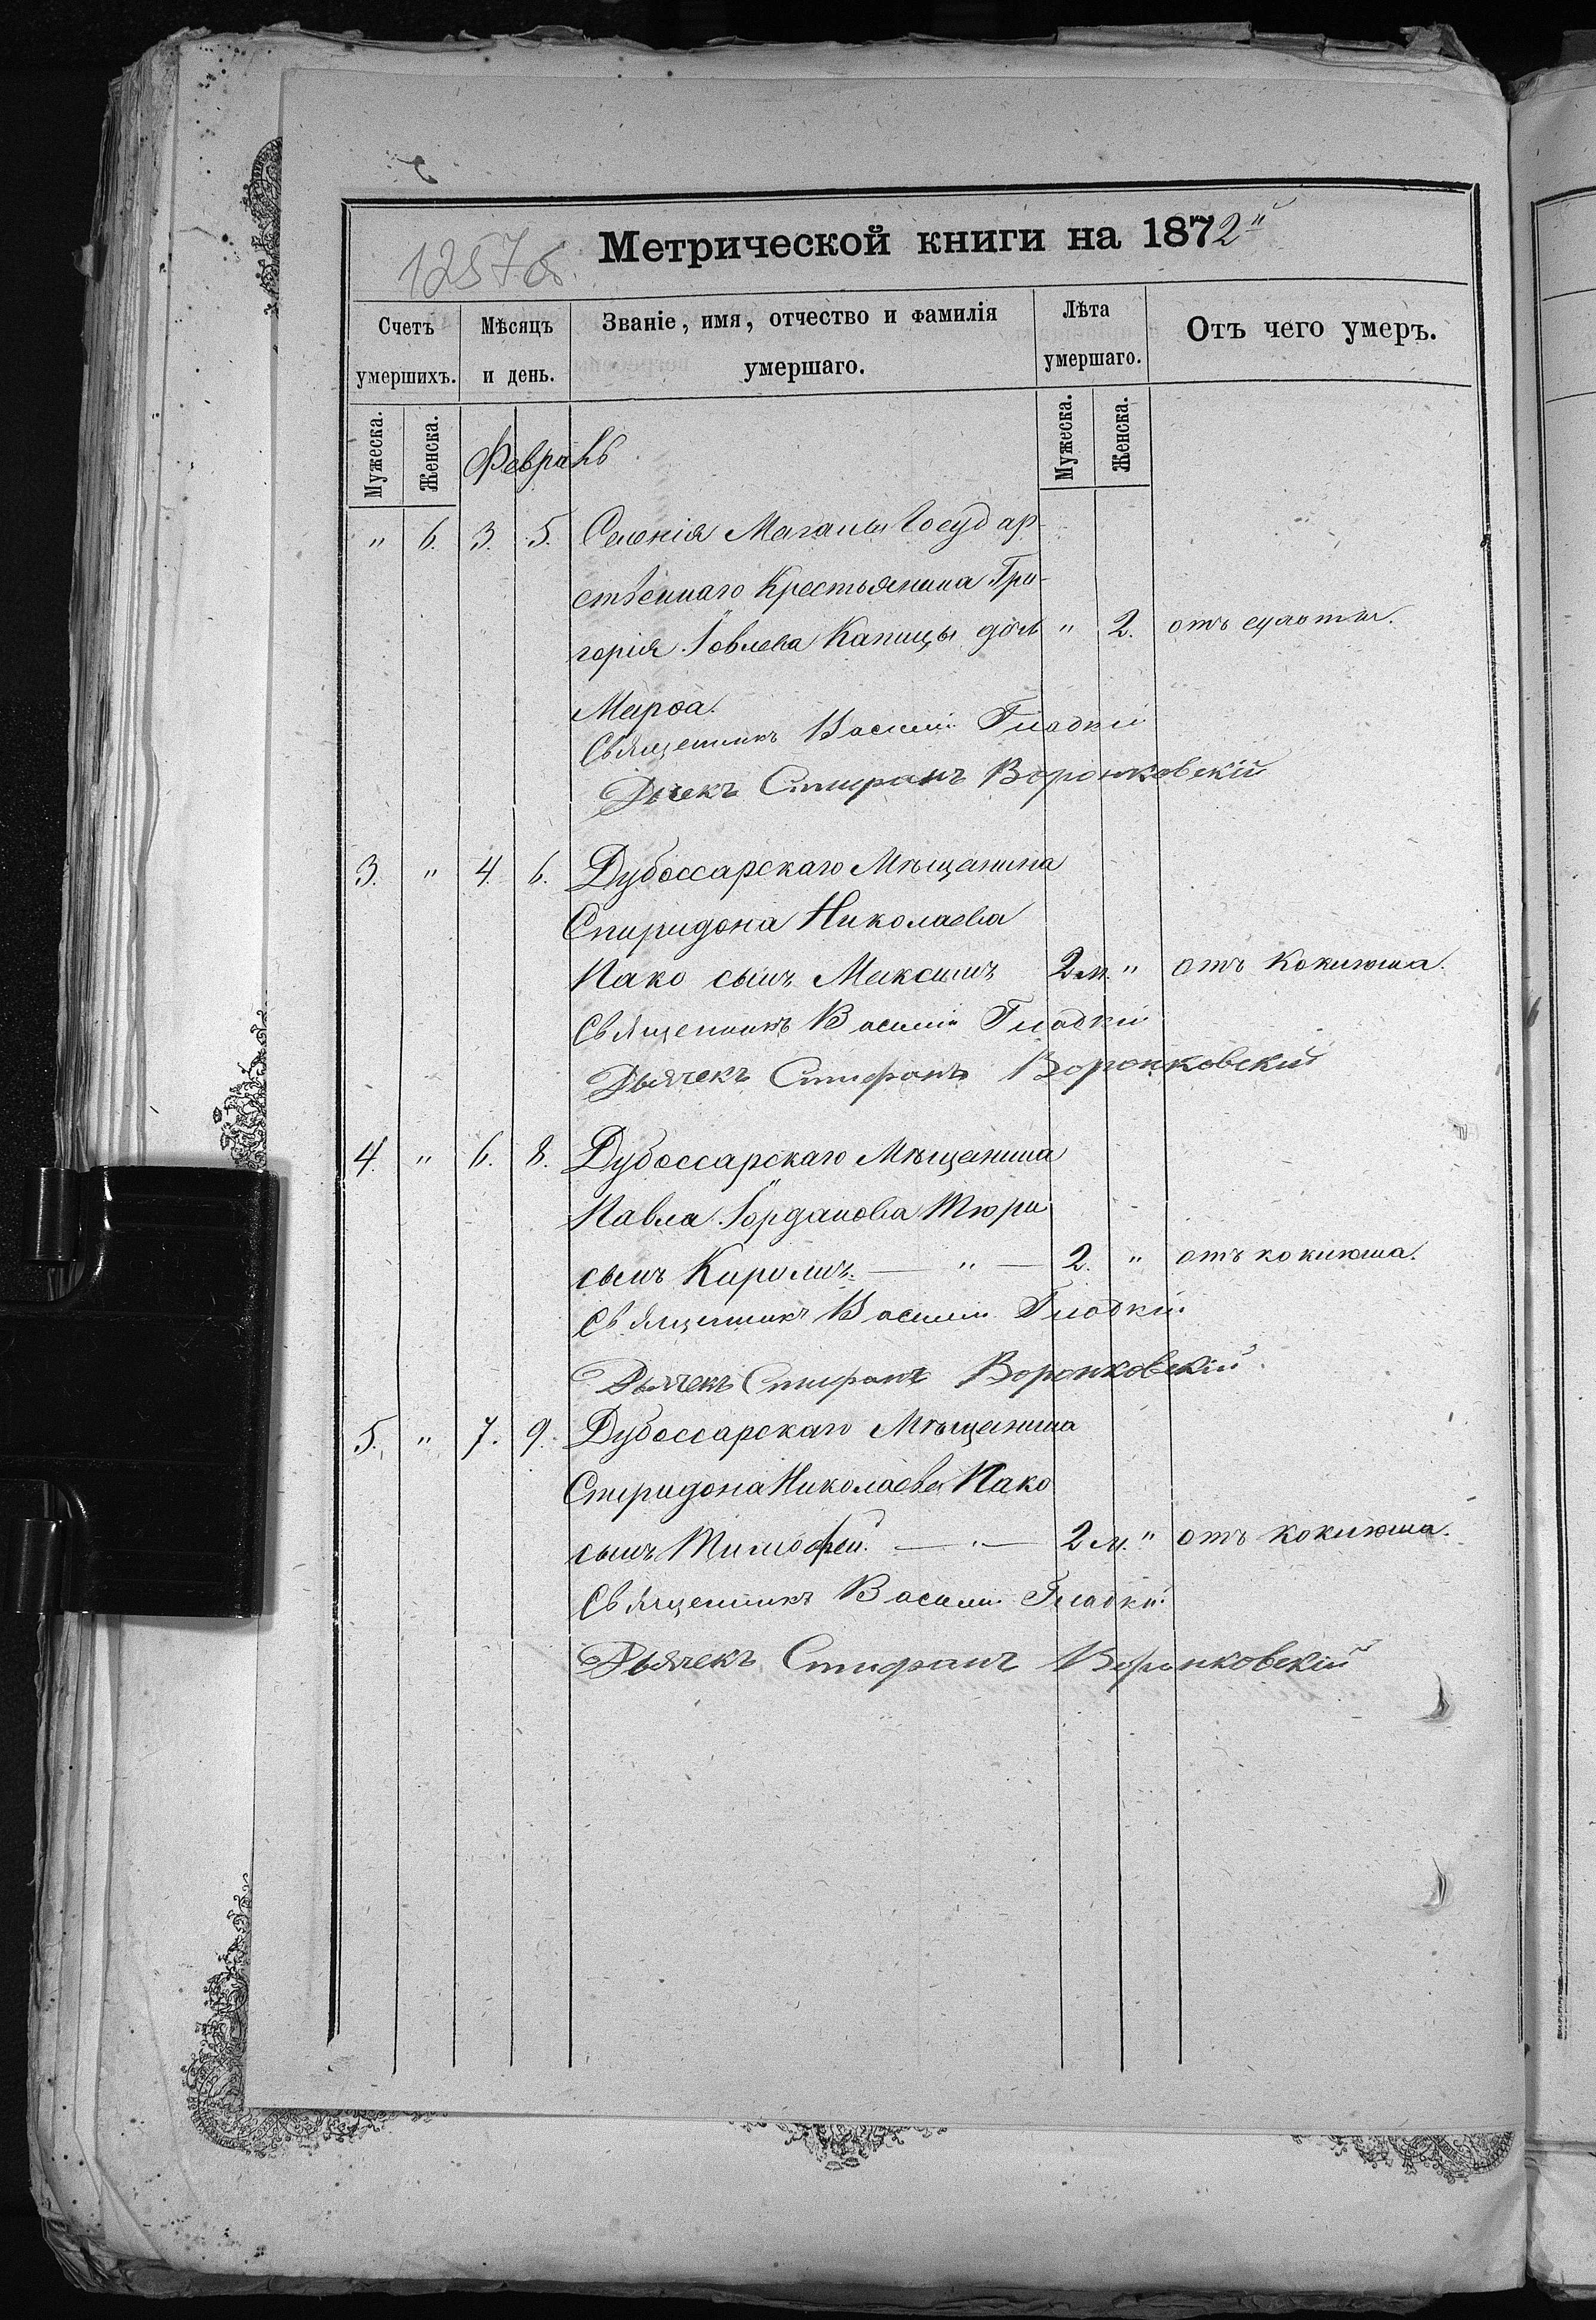 1257об.
Метрической книги на 1872й
Счетъ умершихъ.
Мѣсяцъ и день.
Званіе, имя, отчество и фамилія умершаго.
Лѣта умершаго.
Отъ чего умеръ.
Мужеска.
Женска.
Мужеска.
Женска.
Февраль
" 6. 3. 5. Селенія Маганы Государ-
ственнаго Крестьянина Гри-
горія Іовлева Капицы дочь " 2. отъ сухоты.
Марѳа.
Священникъ Василій Гладкій
Дьячекъ Стефанъ Воронковскій
3. " 4. 6. Дубоссарскаго Мѣщанина
Спиридона Николаева
Пако сынъ Максимъ 2 м. " отъ коклюша.
Священникъ Василій Гладкій
Дьячекъ Стефанъ Воронковскій
4. " 6. 8. Дубоссарскаго Мѣщанина
Павла Іорданова Тюри
сынъ Кирилъ. — " — 2. " отъ коклюша.
Священникъ Василій Гладкій
Дьячекъ Стефанъ Воронковскій
5. " 7. 9. Дубоссарскаго Мѣщанина
Спиридона Николаева Пако
сынъ Тимофей. — " — 2 м. " отъ коклюша.
Священникъ Василій Гладкій
Дьячекъ Стефанъ Воронковскій